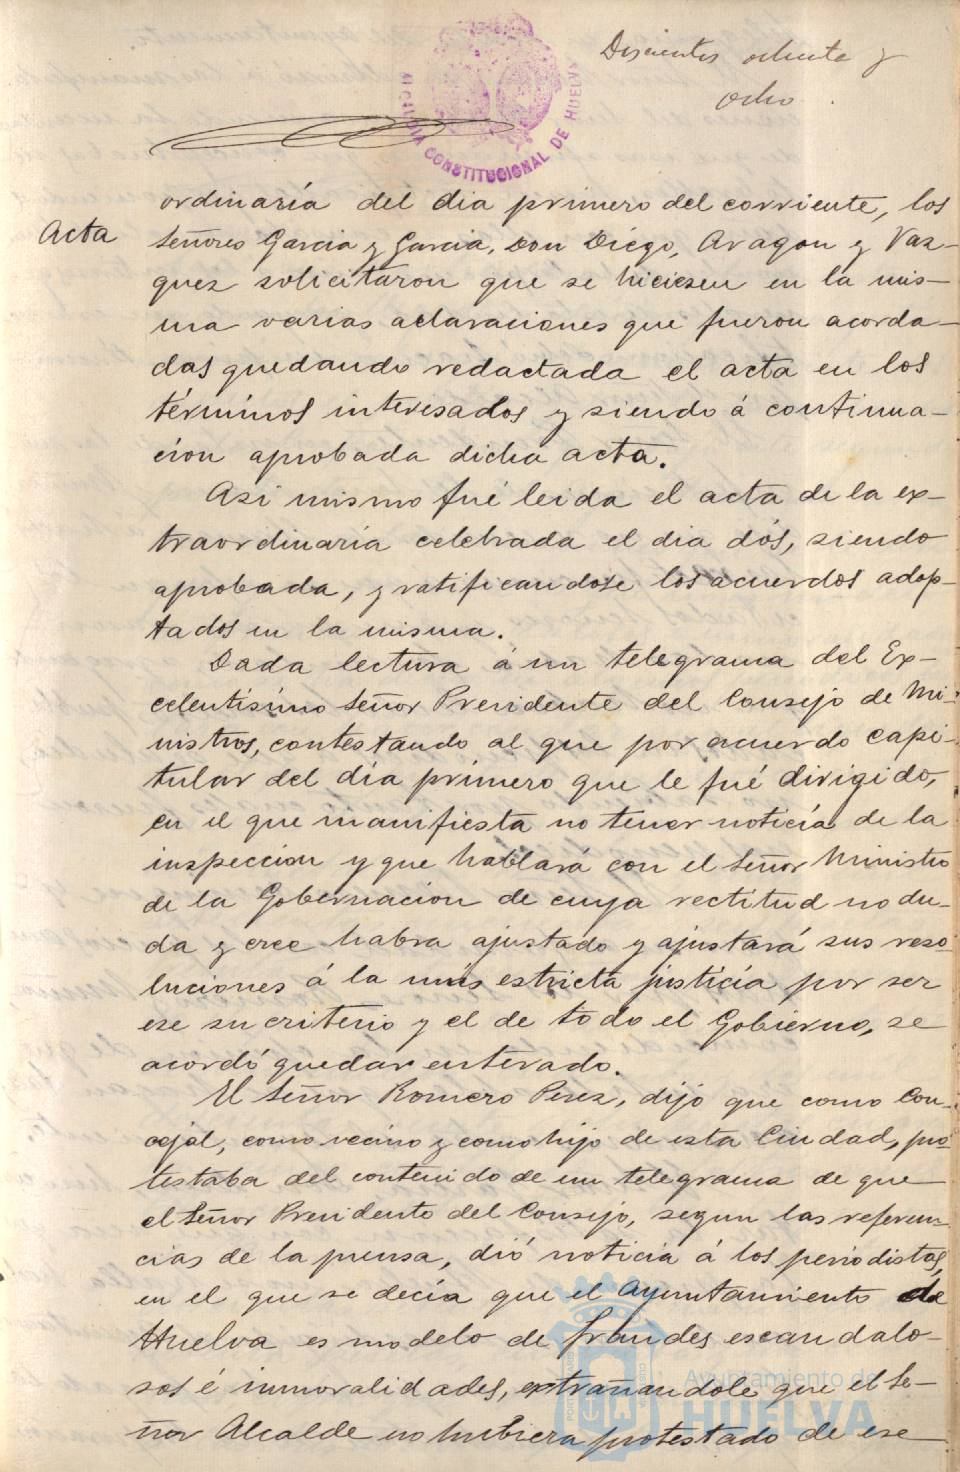 Doscientos ochenta y
ocho.
ALCALDIA CONSTITUCIONAL DE HUELVA
ordinaría del dia primero del corriente, los
Acta
Señores Garcia y Garcia, Don Diego, Aragon y Vaz-
quez solicitaron que se hiciesen en la mis-
ma varias aclaraciones que fueron acorda-
das quedando redactada el acta en los
términos interesados y siendo á continua-
cion aprobada dicha acta.
Asi mismo fué leida el acta de la ex-
traordinaria celebrada el dia dós, siendo
aprobada, y ratificandose los acuerdos adop-
tados en la misma.
Dada lectura á un telegrama del Ex-
celentísimo Señor Presidente del Consejo de Mi-
nistros, contestando al que por acuerdo capi-
tular del día primero que le fué dirigido,
en el que manifiesta no tener noticia de la
inspeccion y que hablará con el Señor Ministro
de la Gobernacion de cuya rectitud no du-
da y cree habra ajustado y ajustará sus reso-
luciones á la mas estricta justicia por ser
ese su criterio y el de todo el Gobierno, se
acordó quedar enterado.
El Señor Romero Perez, dijo que como Con-
cejal, como vecino y como hijo de esta Ciudad, pro-
testaba del contenido de un telegrama de que
el Señor Presidente del Consejo, segun las referen-
cias de la prensa, dió noticia á los periodistas,
en el que se decía que el Ayuntamiento de
Huelva es modelo de fraudes escandalo-
sos é inmoralidades, extrañandole que el Se-
ñor Alcalde no hubiera protestado de ese
Ayuntamiento de
HUELVA